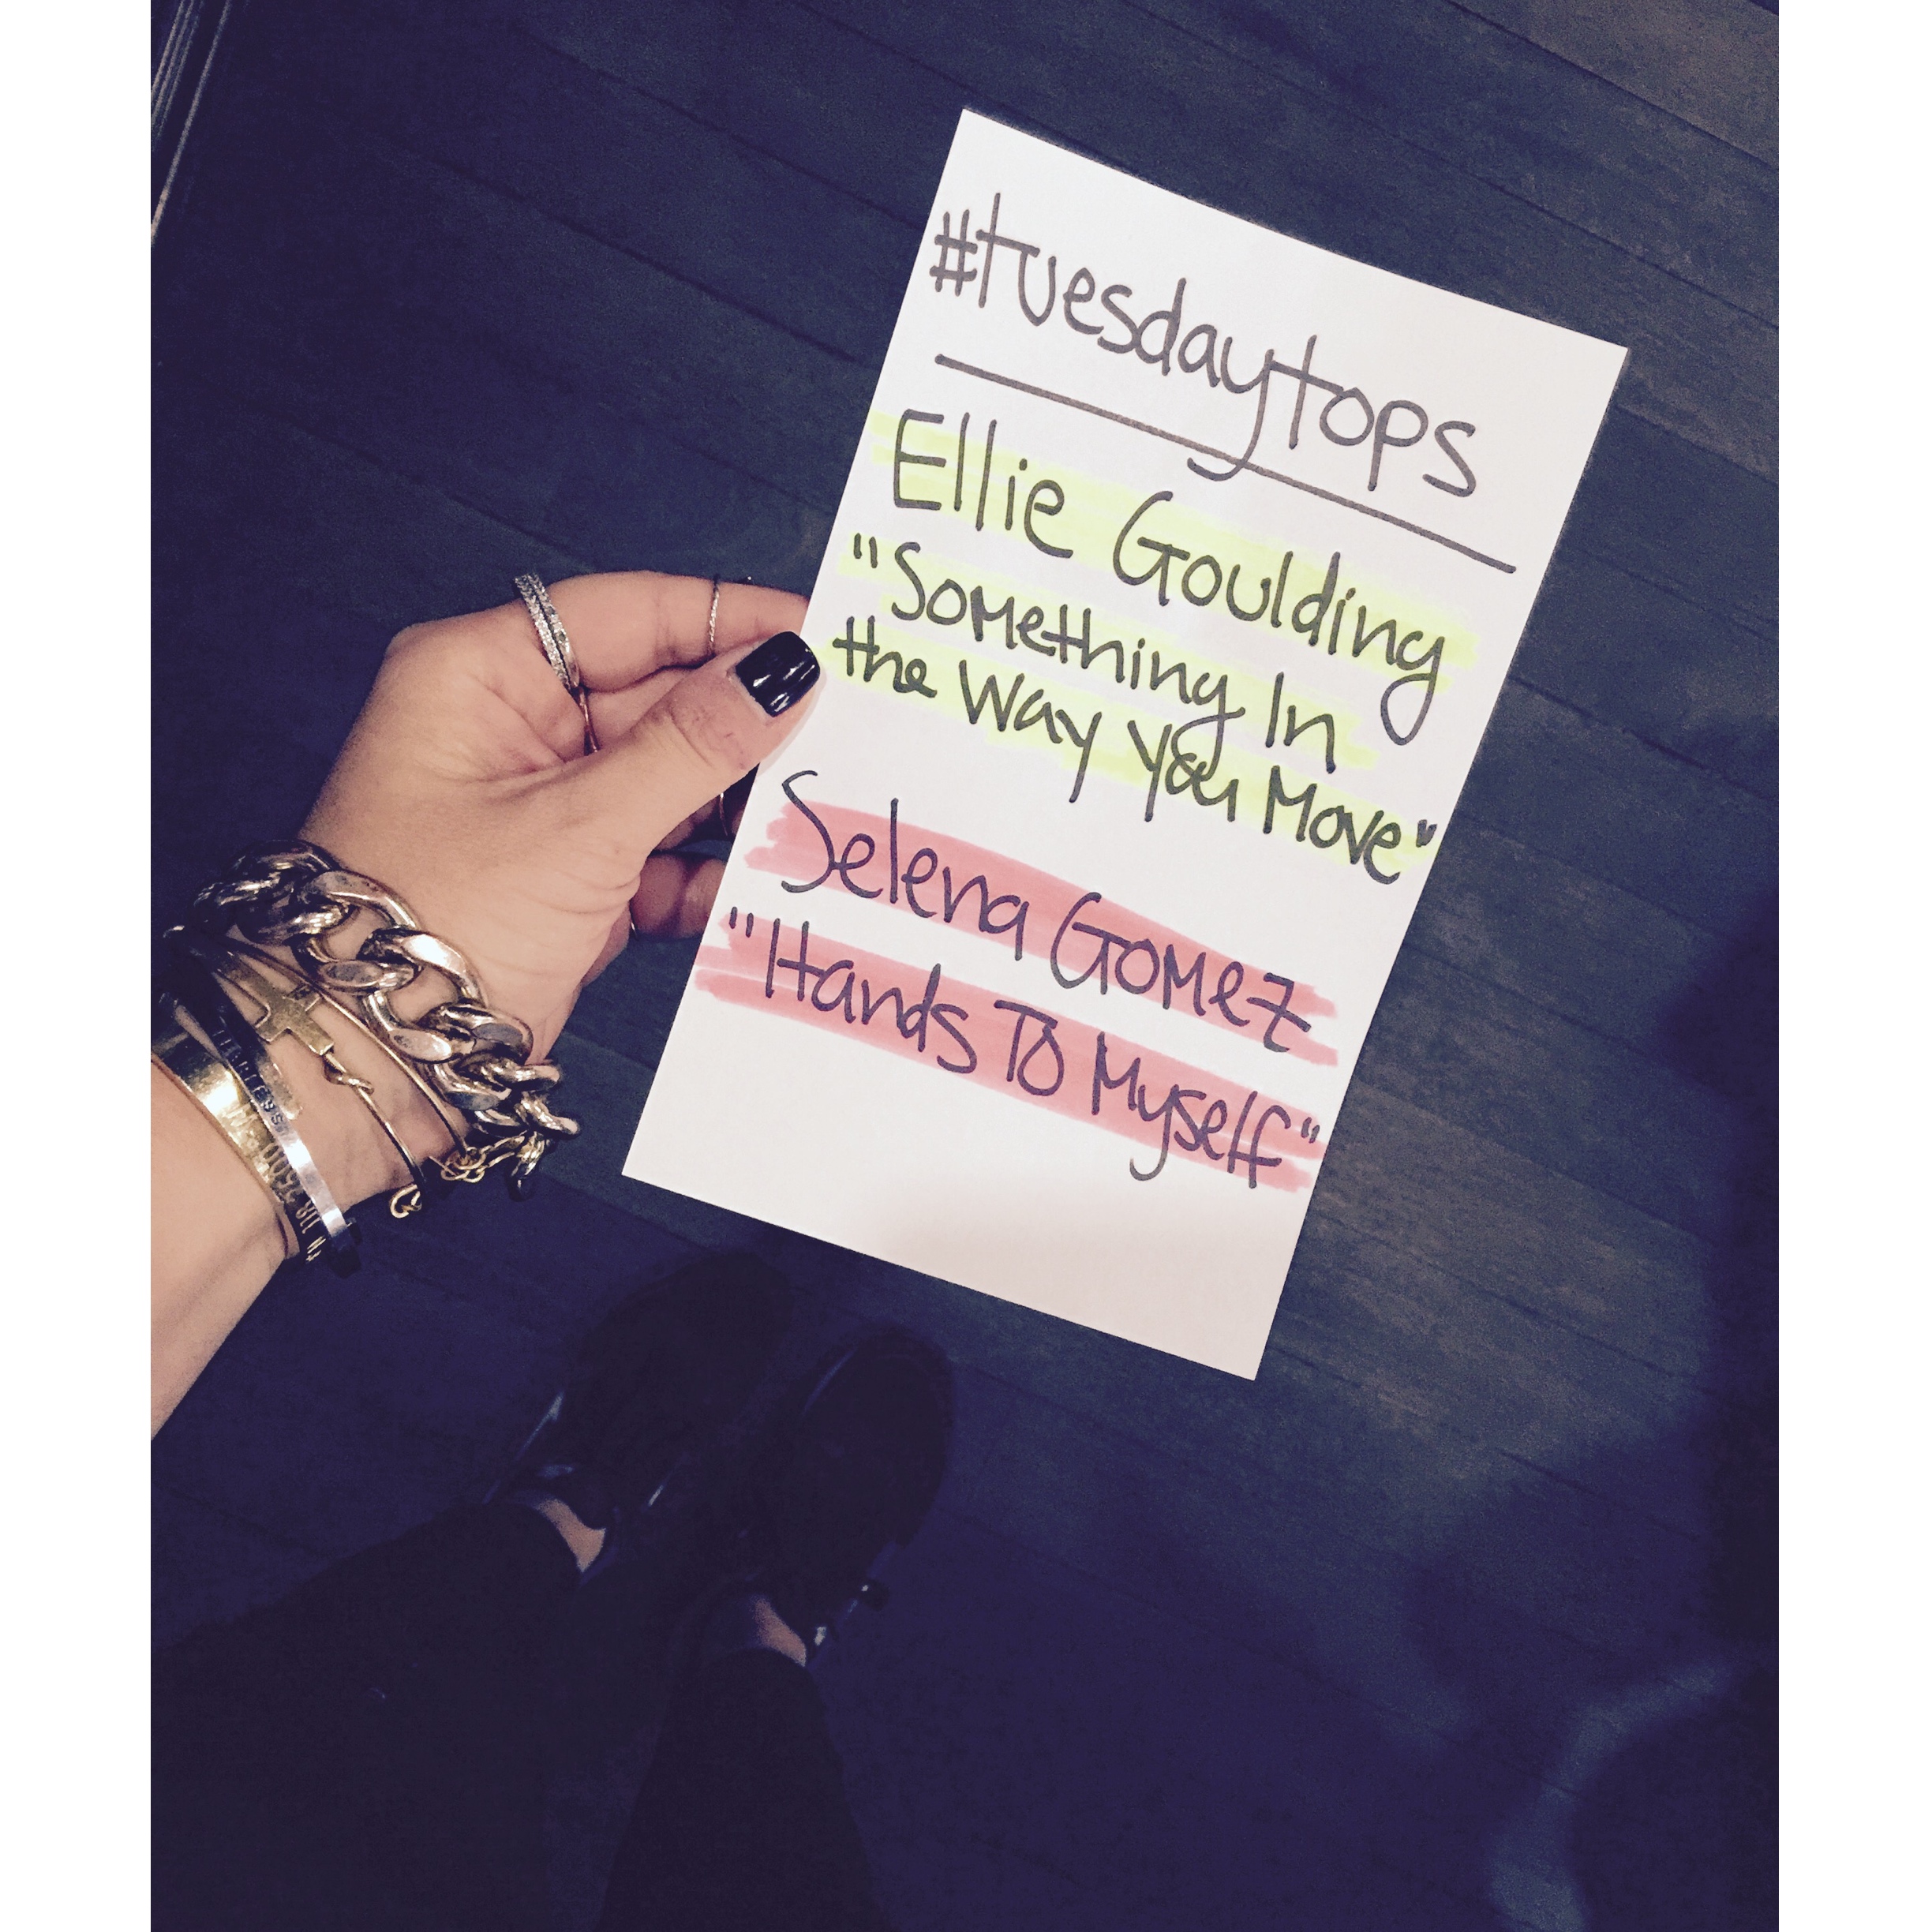 #tuesdaytops
Ellie Goulding
"Something In
the Way You Move"
Selena Gomez
"Hands To Myself"